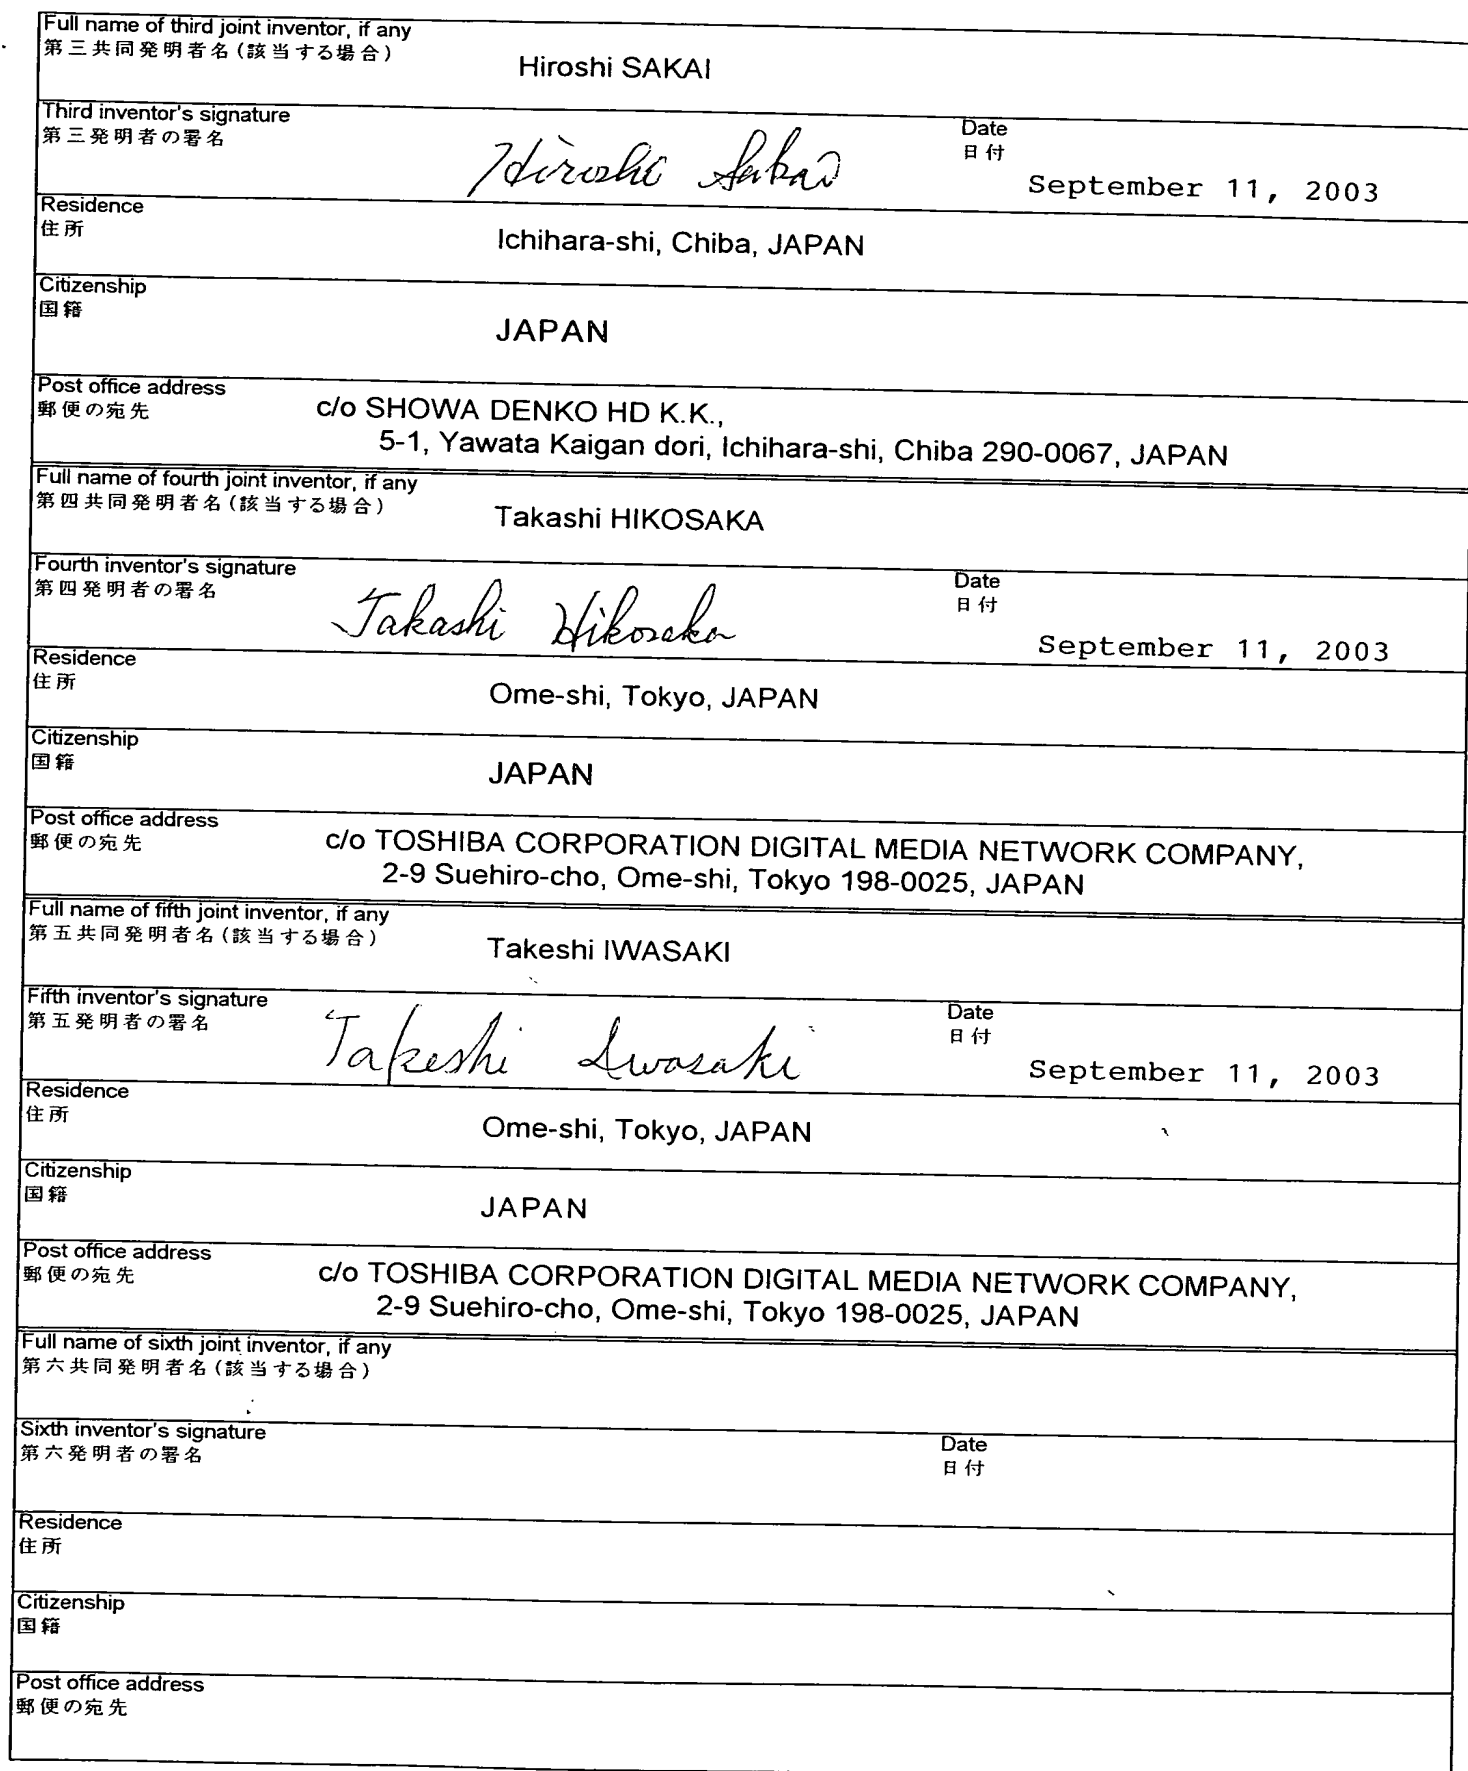 Full name of third joint inventor, if any
第三共同発明者名(該当する場合)
Hiroshi SAKAI
Third inventor's signature
第三発明者の署名
Hiroshi Sakai
Date
日付
September 11, 2003
Residence
住所
Ichihara-shi, Chiba, JAPAN
Citizenship
国籍
JAPAN
Post office address
郵便の宛先
c/o SHOWA DENKO HD K.K.,
5-1, Yawata Kaigan dori, Ichihara-shi, Chiba 290-0067, JAPAN
Full name of fourth joint inventor, if any
第四共同発明者名(該当する場合)
Takashi HIKOSAKA
Fourth inventor's signature
第四発明者の署名
Takashi Hikosaka
Date
日付
September 11, 2003
Residence
住所
Ome-shi, Tokyo, JAPAN
Citizenship
国籍
JAPAN
Post office address
郵便の宛先
c/o TOSHIBA CORPORATION DIGITAL MEDIA NETWORK COMPANY,
2-9 Suehiro-cho, Ome-shi, Tokyo 198-0025, JAPAN
Full name of fifth joint inventor, if any
第五共同発明者名(該当する場合)
Takeshi IWASAKI
Fifth inventor's signature
第五発明者の署名
Takeshi Iwasaki
Date
日付
September 11, 2003
Residence
住所
Ome-shi, Tokyo, JAPAN
Citizenship
国籍
JAPAN
Post office address
郵便の宛先
c/o TOSHIBA CORPORATION DIGITAL MEDIA NETWORK COMPANY,
2-9 Suehiro-cho, Ome-shi, Tokyo 198-0025, JAPAN
Full name of sixth joint inventor, if any
第六共同発明者名(該当する場合)
Sixth inventor's signature
第六発明者の署名
Date
日付
Residence
住所
Citizenship
国籍
Post office address
郵便の宛先